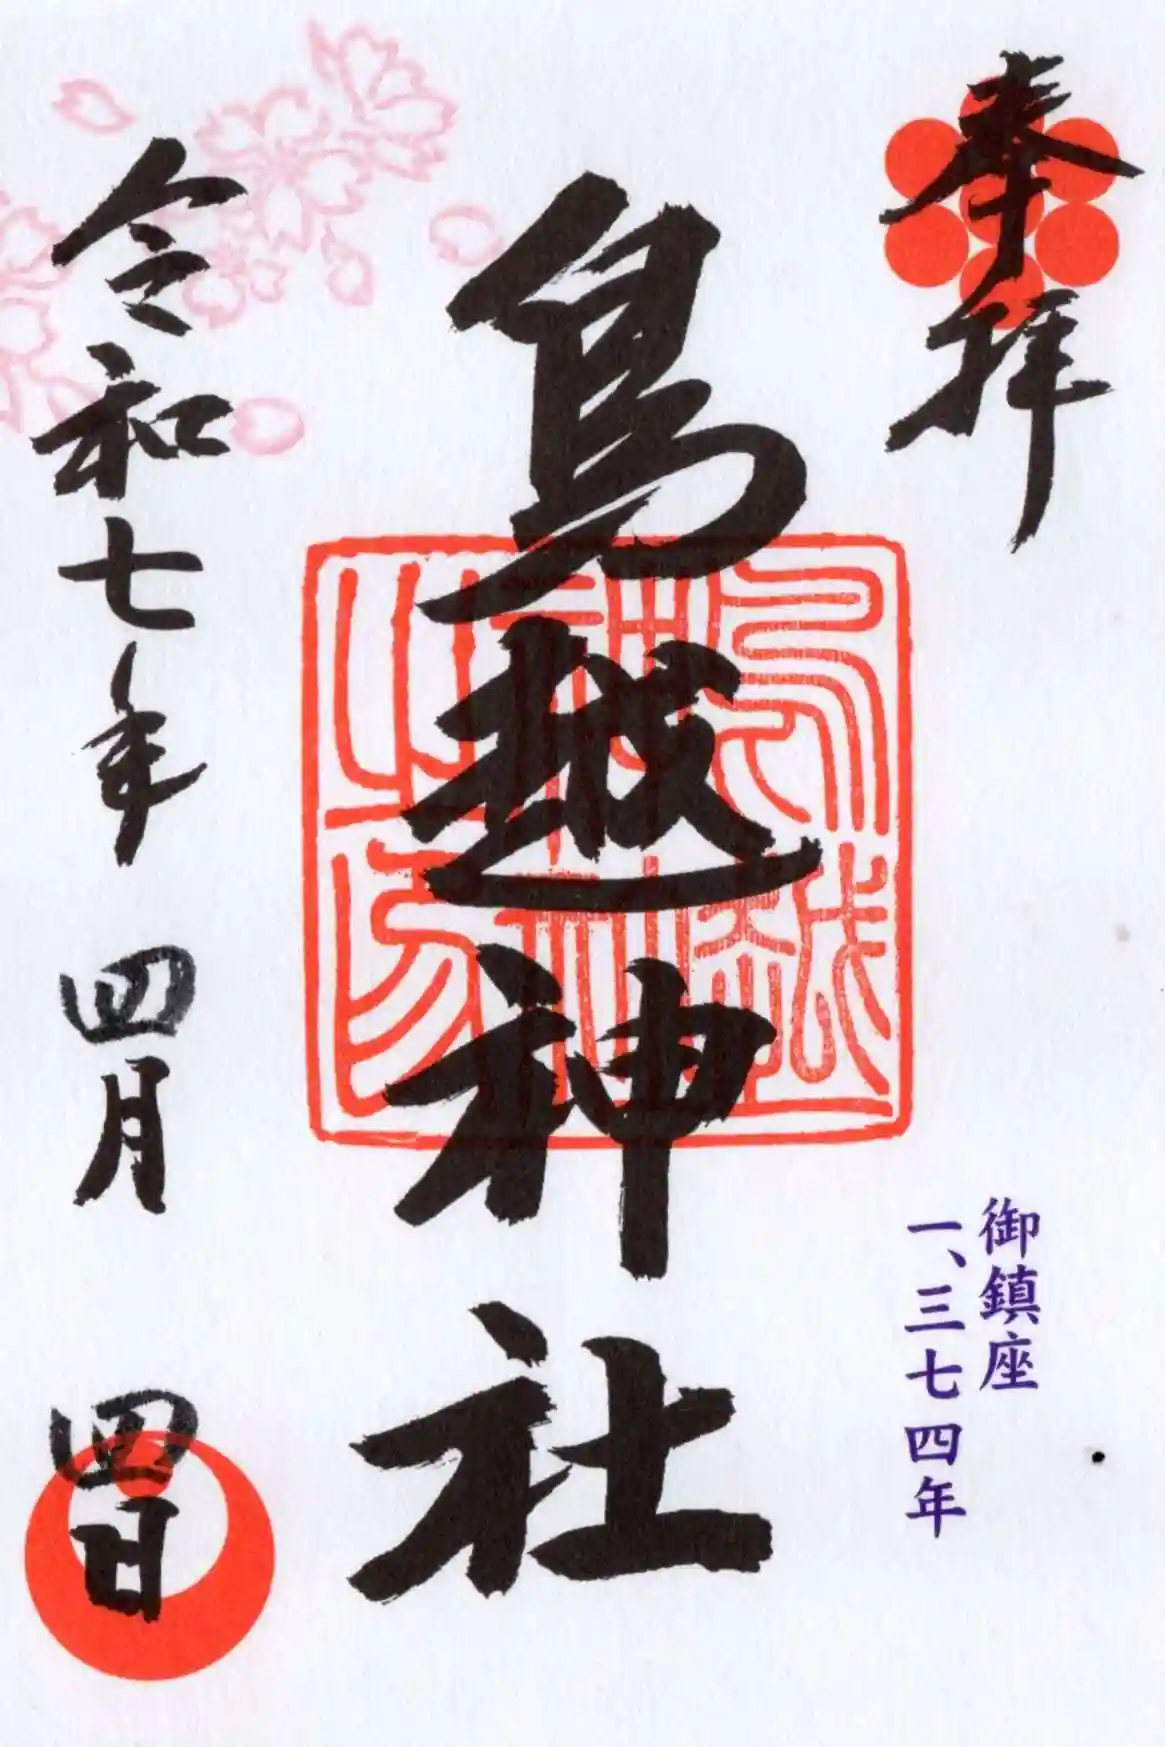 奉拝
御鎮座
一、三七四年
鳥越神社
鳥越
神社
之印
令和七年 四月 四日